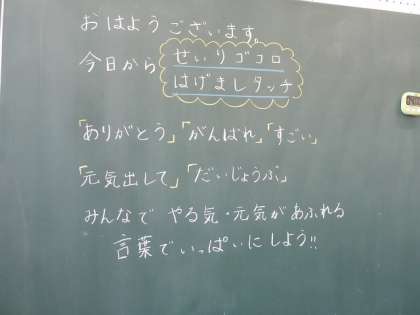 おはようございます。
今日から せいりゴコロ
はげましタッチ
「ありがとう」「がんばれ」「すごい」
「元気出して」「だいじょうぶ」
みんなで やる気・元気があふれる
言葉でいっぱいにしよう!!